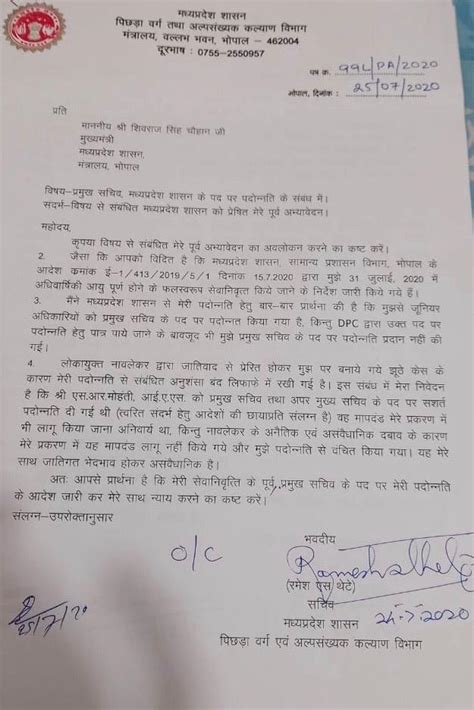 मध्यप्रदेश शासन
पिछड़ा वर्ग तथा अल्पसंख्यक कल्याण विभाग
मंत्रालय, वल्लभ भवन, भोपाल – 462004
दूरभाष : 0755-2550957
पत्र क्र. 991/PA/2020
भोपाल, दिनांक : 25/07/2020
प्रति
माननीय श्री शिवराज सिंह चौहान जी
मुख्यमंत्री
मध्यप्रदेश शासन,
मंत्रालय, भोपाल
विषय–प्रमुख सचिव, मध्यप्रदेश शासन के पद पर पदोन्नति के संबंध में।
संदर्भ–विषय से संबंधित मध्यप्रदेश शासन को प्रेषित मेरे पूर्व अभ्यावेदन।
महोदय,
कृपया विषय से संबंधित मेरे पूर्व अभ्यावेदन का अवलोकन करने का कष्ट करें।
2. जैसा कि आपको विदित है कि मध्यप्रदेश शासन, सामान्य प्रशासन विभाग, भोपाल के
आदेश क्रमांक ई-1/413/2019/5/1 दिनांक 15.7.2020 द्वारा मुझे 31 जुलाई, 2020 में
अधिवार्षिकी आयु पूर्ण होने के फलस्वरूप सेवानिवृत्त किये जाने के निर्देश जारी किये गये हैं।
3. मैंने मध्यप्रदेश शासन से मेरी पदोन्नति हेतु बार-बार प्रार्थना की है कि मुझसे जूनियर
अधिकारियों को प्रमुख सचिव के पद पर पदोन्नत किया गया है, किन्तु DPC द्वारा उक्त पद पर
पदोन्नति हेतु पात्र पाये जाने के बावजूद भी मुझे प्रमुख सचिव के पद पर पदोन्नति प्रदान नहीं की
गई।
4. लोकायुक्त नावलेकर द्वारा जातिवाद से प्रेरित होकर मुझ पर बनाये गये झूठे केस के
कारण मेरी पदोन्नति से संबंधित अनुशंसा बंद लिफाफे में रखी गई है। इस संबंध में मेरा निवेदन
है कि श्री एस.आर.मोहंती, आई.ए.एस. को प्रमुख सचिव तथा अपर मुख्य सचिव के पद पर सशर्त
पदोन्नति दी गई थी (त्वरित संदर्भ हेतु आदेशों की छायाप्रति संलग्न है) वह मापदंड मेरे प्रकरण में
भी लागू किया जाना अनिवार्य था, किन्तु नावलेकर के अनैतिक एवं असंवैधानिक दबाव के कारण
मेरे प्रकरण में यह मापदंड लागू नहीं किये गये और मुझे पदोन्नति से वंचित किया गया। यह मेरे
साथ जातिगत भेदभाव होकर असंवैधानिक है।
अतः आपसे प्रार्थना है कि मेरी सेवानिवृत्ति के पूर्व, प्रमुख सचिव के पद पर मेरी पदोन्नति
के आदेश जारी कर मेरे साथ न्याय करने का कष्ट करें।
संलग्न-उपरोक्तानुसार
भवदीय
O/C
Rameshthete
(रमेश एस थेटे)
सचिव
मध्यप्रदेश शासन
25/7/20
पिछड़ा वर्ग एवं अल्पसंख्यक कल्याण विभाग